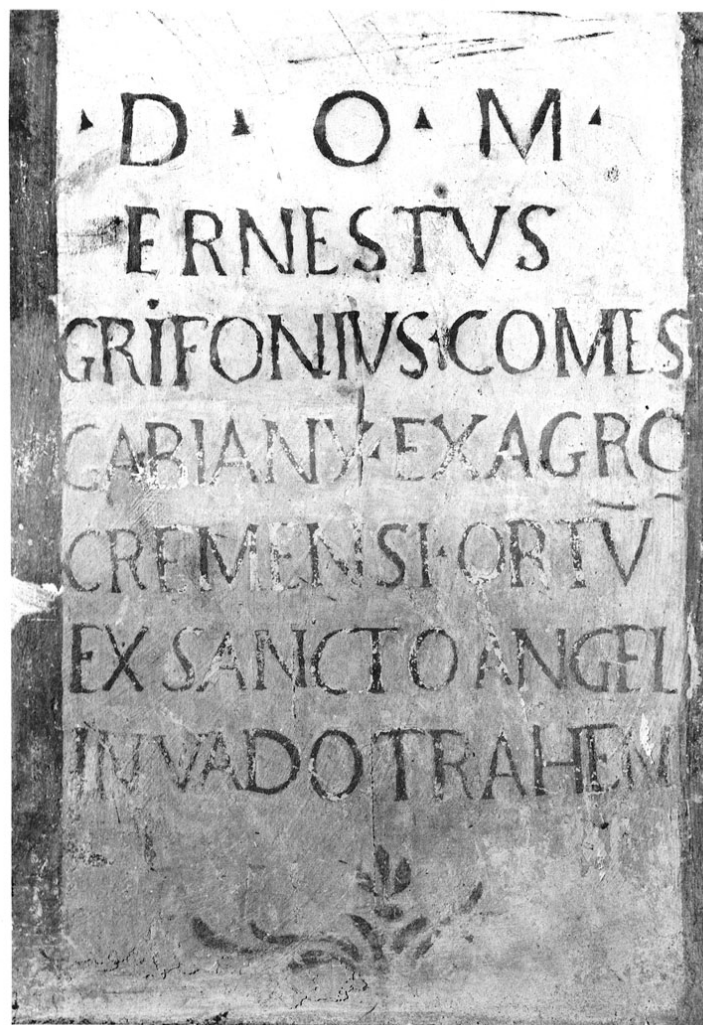 · D · O · M ·
ERNESTVS
GRIFONIVS·COMES
GABIANV·EX AGRO
CREMENSI·ORTŪ
EX SANCTO ANGEL
IN VADO TRAHEN